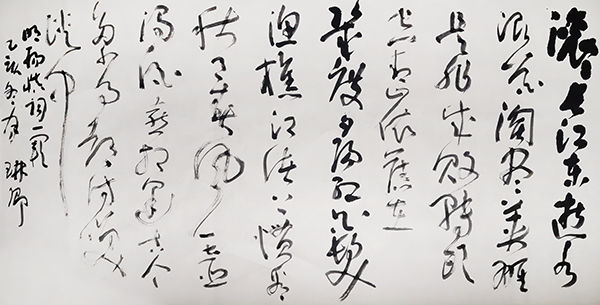 滚滚长江东逝水
浪花淘尽英雄
是非成败转头
空青山依旧在
几度夕阳红白发
渔樵江渚上惯看
秋月春风一壶
浊酒喜相逢古今
多少事都付笑
谈中
明杨慎词一首